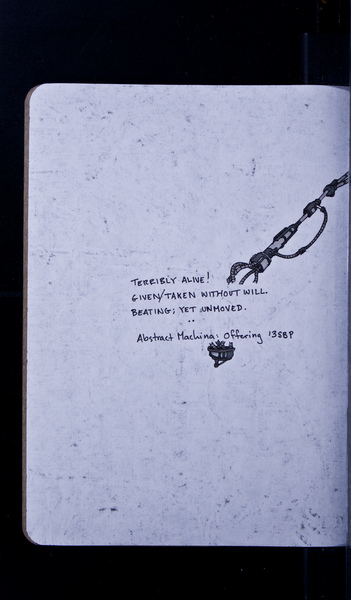 TERRIBLY ALIVE!
GIVEN/TAKEN WITHOUT WILL.
BEATING; YET UNMOVED.
Abstract Machina: Offering